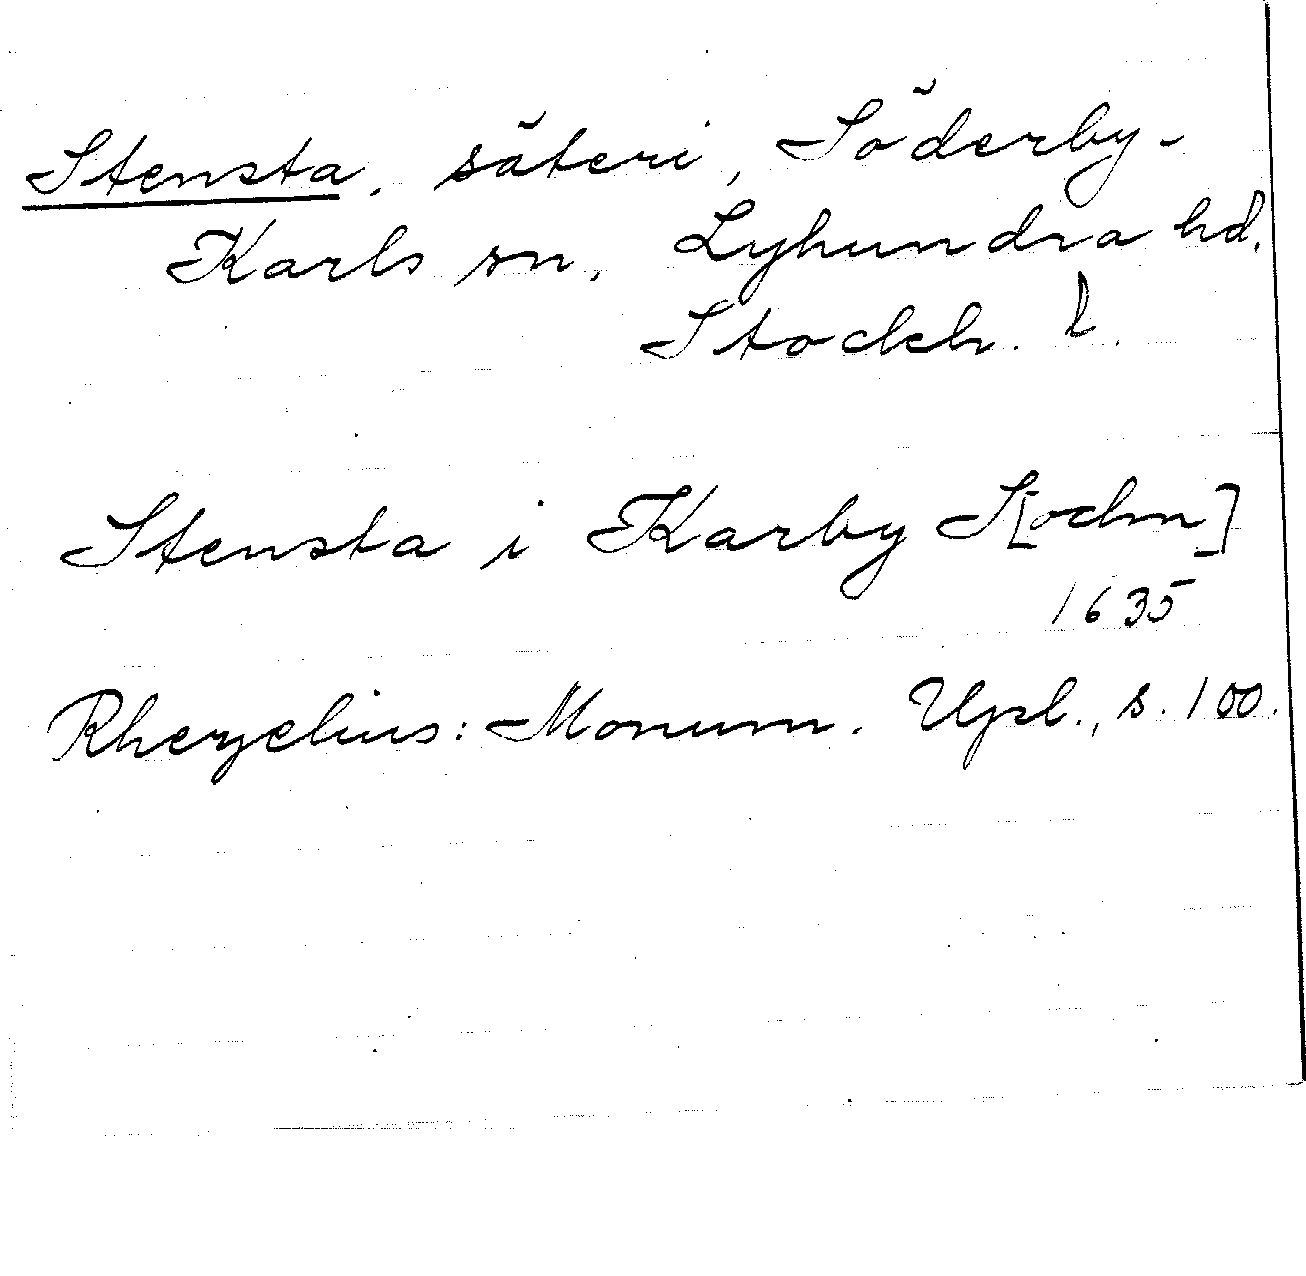 Stensta, säteri, Söderby-
Karls sn, Lyhundra hd,
Stockh. l.
Stensta i Karby S[ochn]
1635
Rhezelius: Monum. Upl., s. 100.